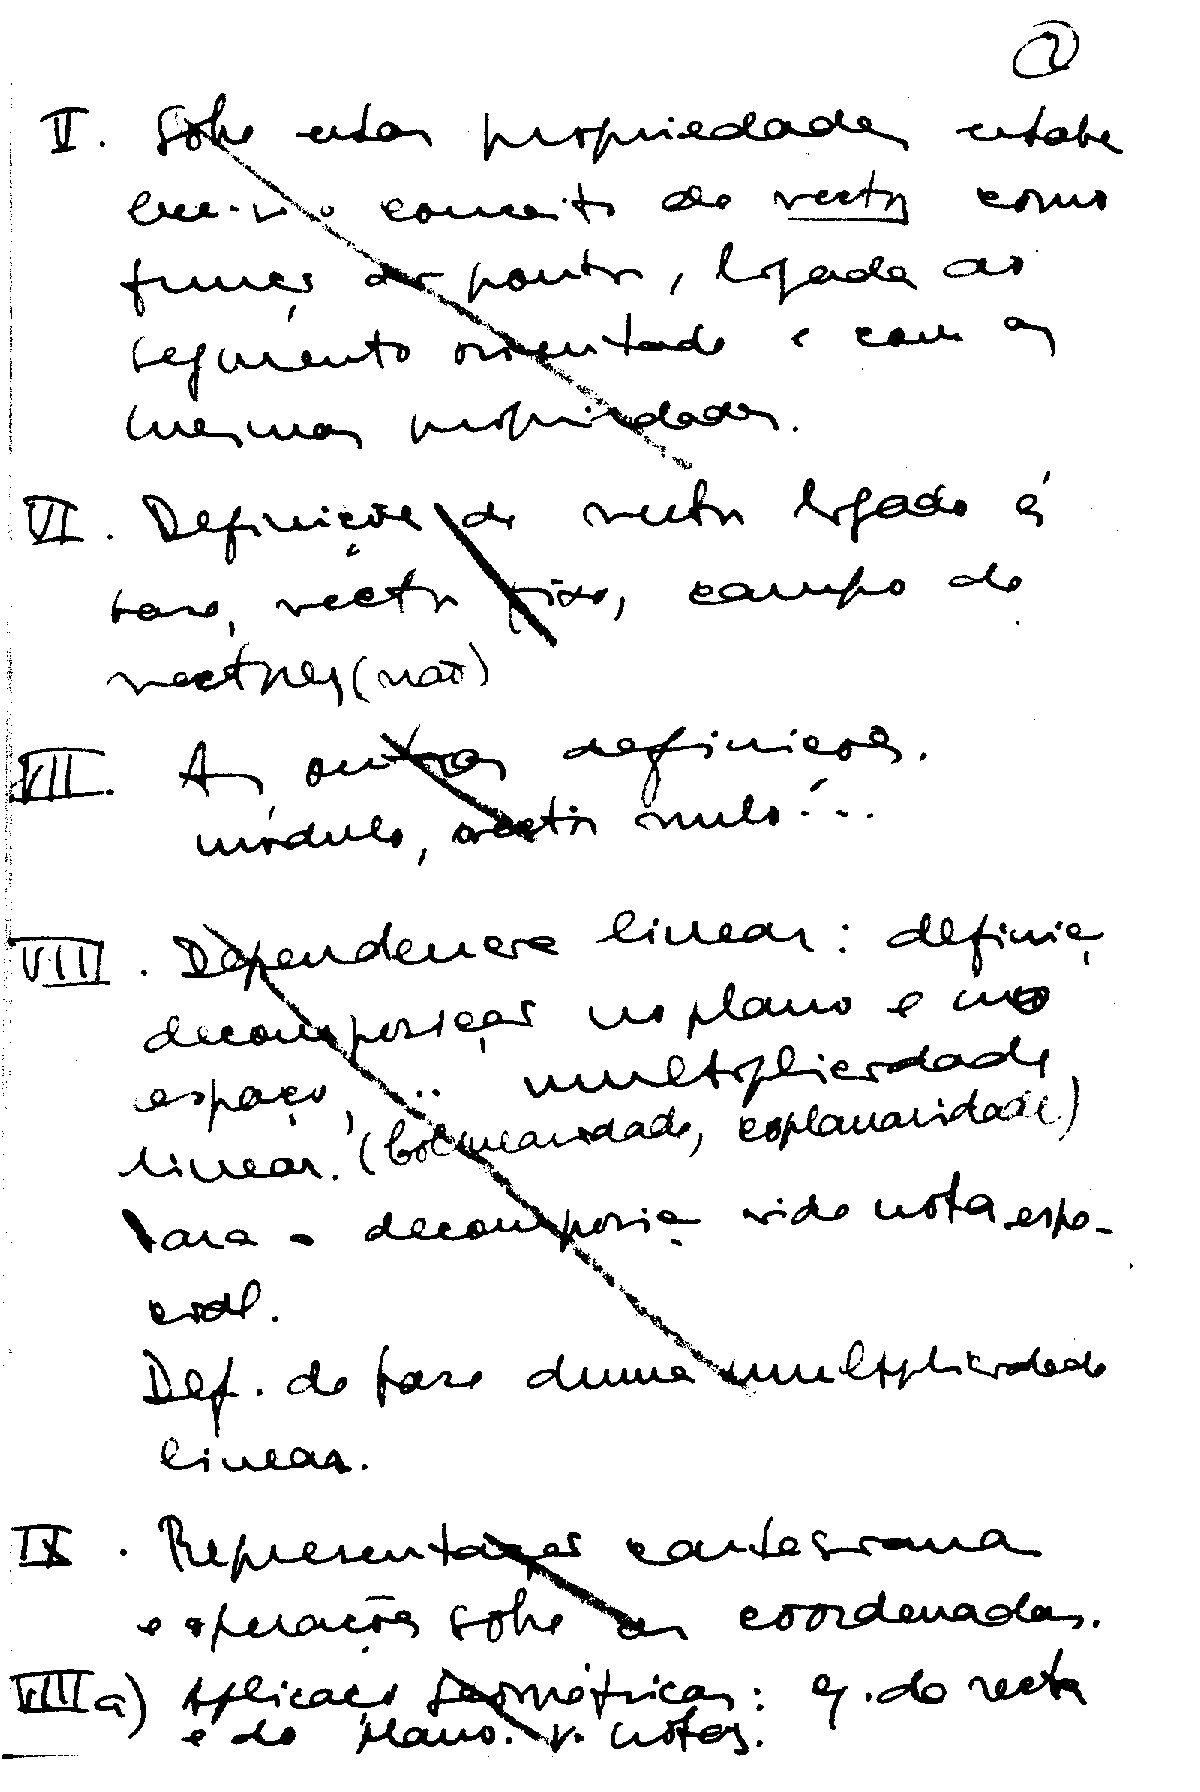 2
V. Sobre estas propriedades estabe
lece-se o conceito de vector como
função dos pontos, ligada ao
segmento orientado e com as
mesmas propriedades.
VI. Definições de vector ligado à
base, vector fixo, campo de
vectores (não)
VII. As outras definições.
módulo, vector nulo...
VIII. Dependencia linear: definiç
decomposições no plano e no
espaço, .. multiplicidade
linear. (colinearidade, coplanaridade)
Para a decomposiç vide nota espe-
cial.
Def. de base duma multiplicidade
linear.
IX. Representações cartesiana
e operações sobre as coordenadas.
VIII a) Aplicações geométricas: eq. da recta
e do plano. v. notas.